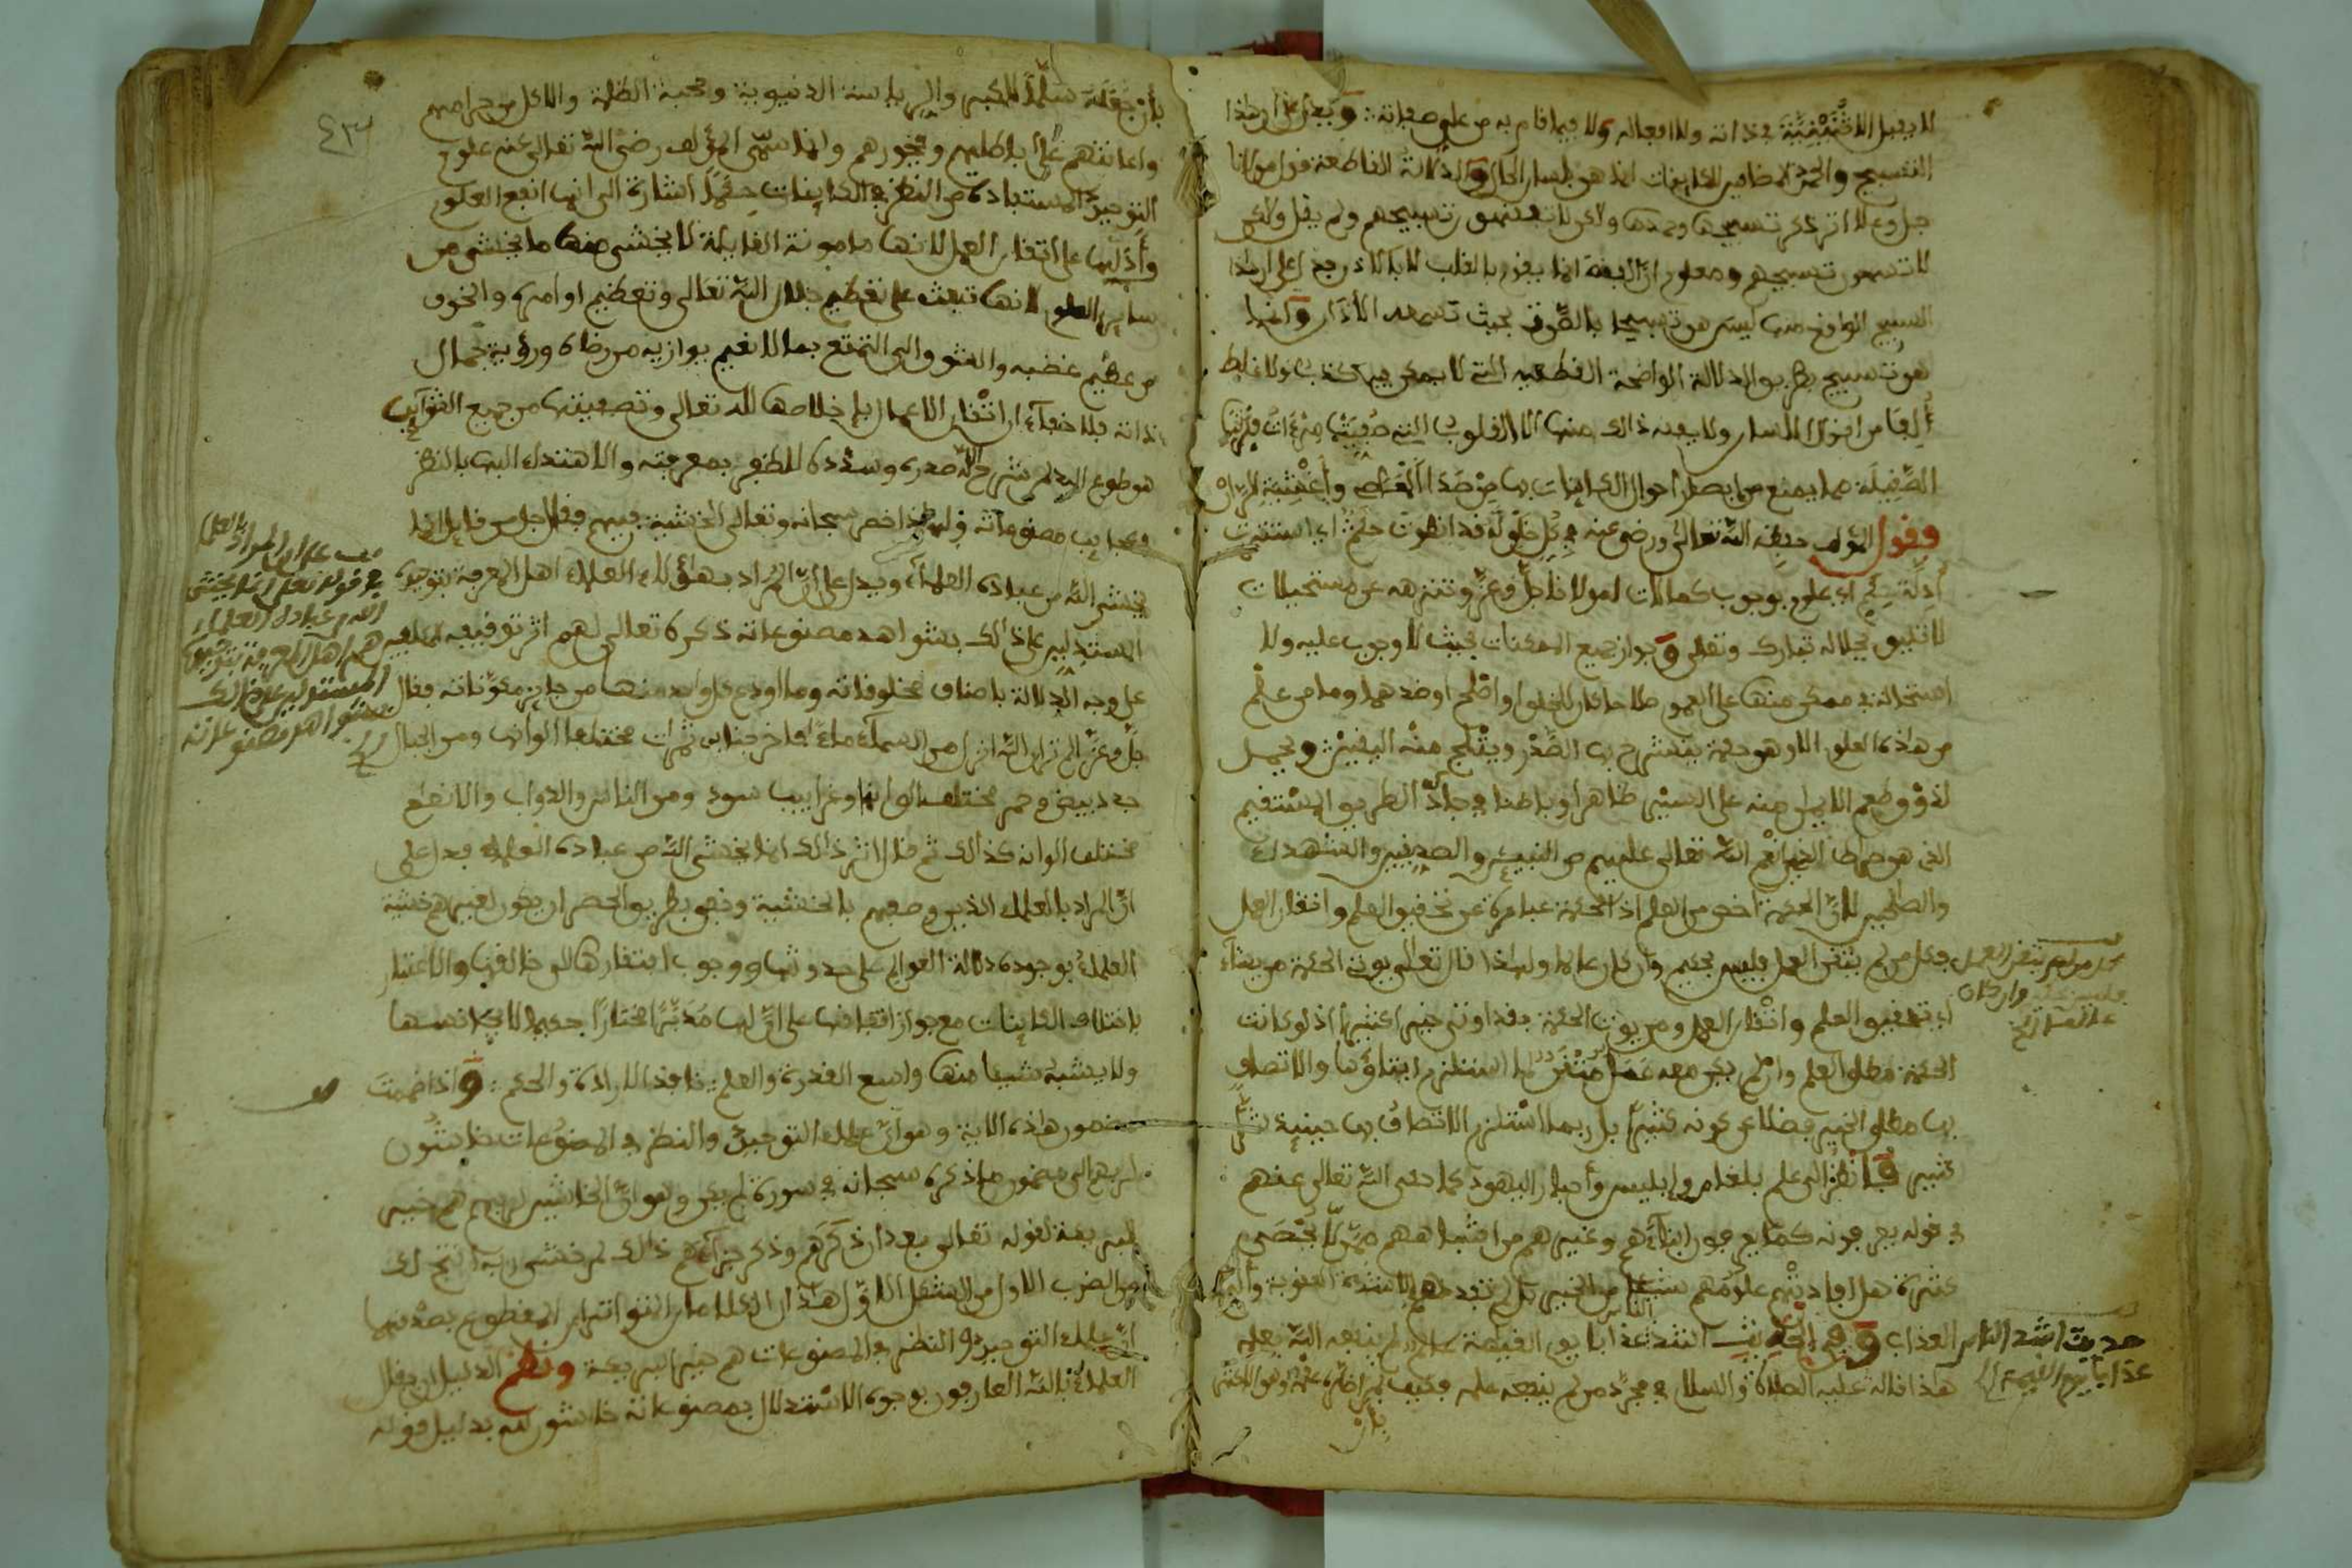 لا يقبل الاثنينية في ذاته ولا افعاله ولا فيما قام به من على صفاته
التسبيح والحمد
جل وعلا اثر ذكر تسبيحها وحمدها ولكن لا تفقهون تسبيحهم ولم يقل ولكن
لا تسمعون تسبيحهم ومعلوم ان الفقه انما يكون بالقلب لا بالاذن
التسبيح الواقع منها ليس هو تسبيحا بالصوت بحيث تسمعه الآذان وانما
هو تسبيح بطريق الدلالة الواضحة القطعية التي لا يمكن فيها كذب ولا غلط
من اقوال اللسان ولا يفقه ذلك منها الا القلوب التي صفيت مرءات
الصقيلة مما يمنع من
وقول المؤلف حفظه الله تعالى ورضي عنه في كل خلق له قد انطوت حكم اي استترت
ادلة حكم اي علوم بوجوب كمالات لمولانا جل وعز وتنزهه عن مستحيلات
لا تليق بجلاله تبارك وتعالى وجواز جميع الممكنات بحيث لا وجوب عليه ولا
استحالة في ممكن منها على العموم صلاحا كان للخلق او اصلح او ضدهما وما من علم
من هذه العلوم الا وهو حكمة ينشرح بها الصدر ويثلج منه اليقين ويحمل
لذوق طعم الايمان منه على السير ظاهرا وباطنا في جادة الطريق المستقيم
الذي هو صراط الذين انعم الله تعالى عليهم من النبيئين والصديقين والشهداء
والصالحين لان الحكمة اخص من العلم اذ الحكمة عبارة عن تحقيق العلم واتقان العمل
وكل من لم يتقن العمل فليس بحكيم وان كان عالما ولهذا قال تعالى يوتي الحكمة من يشاء
اي تحقيق العلم واتقان العمل ومن يوت الحكمة فقد اوتي خيرا كثيرا اذ لو كانت
الحكمة مطلق العلم وان لم يكن معه عمل متقن لما استلزم ايتاؤها والاتصاف
بها مطلق الخير فضلا عن كونه كثيرا بل ربما استلزم الاتصاف بها حينئذ شر
كثير فانظر الى علم بلعام وابليس وأحبار اليهود كما حكى الله تعالى عنهم
في قوله يعرفونه كما يعرفون ابناءهم وغيرهم من اشباههم ممن لا يحصى
كثرة هل افادتهم علومهم شيئا من الخير بل لم تفدهم الا شدة العقوبة وأليم
العذاب وفي الحديث اشد الناس عذابا يوم القيمة عالم لم ينفعه الله بعلمه
هذا قاله عليه الصلاة والسلام في مجرد من لم ينفعه علمه فكيف بمن اضره علمه وهو الاكثر
بان
كل من لم يتقن العمل
فليس بحكيم وان كان
عالما الخ
حديث اشد الناس
عذابا يوم القيمة الخ
بأن جعله سلما للكبر والرياسة الدنيوية ومحبة الظلمة والاكل من حرامهم
واعانتهم على باطلهم وفجورهم وانما سمى المؤلف رضى الله تعالى عنه علوم
التوحيد المستفادة من النظر في الكاينات حكما اشارة الى انها انفع العلوم
وأدلها على اتقان العمل لانها مامونة الغايلة لا يخشى منها ما يخشى من
ساير العلوم لانها تبعث على تعظيم جلال الله تعالى وتعظيم اوامره والخوف
من عظيم غضبه والشوق الى التمتع بما لا نعيم يوازيه من رضاه ورؤية جمال
ذاته فلا خفاء ان اتقان الاعمال باخلاصها لله تعالى وتصفيتها من جميع الشوائب
هو طوع اليد لمن شرح الله صدره وسدده للظفر بمعرفته والاهتداء اليها بالنظر
في عجايب مصنوعاته ولهذا خص سبحانه وتعالى الخشية فيهم فقال جل من قايل انما
يخشى الله من عباده العلماء ويدل على ان المراد بهؤلاء العلماء اهل المعرفة بتوحيده
المستدلين على ذلك بشواهد مصنوعاته ذكره تعالى لهم اثر توقيفه
على وجه الدلالة باصناف مخلوقاته وما اودع في كل واحد منها من جايز مكوناته فقال
جل وعز الم تر ان الله انزل من السماء ماء فاخرجنا به ثمرات مختلفا الوانها ومن الجبال
جدد بيض وحمر مختلف الوانها وغرابيب سود ومن الناس والدواب والانعام
مختلف الوانه كذلك ثم قال اثر ذلك انما يخشى الله من عباده العلماء فدل على
ان المراد بالعلماء الذين وصفهم بالخشية ونفى بطريق الحصر ان يكون لغيرهم خشية
العلماء بوجوه دلالة العوالم على حدوثها ووجوب افتقارها الى خالقها والاعتبار
باختلاف الكاينات مع جواز اتفاقها على ان لها مدبرا مختارا حكيما لا يجانسها
ولا يشبه شيئا منها واسع القدرة والعلم نافذ الارادة والحكم واذا ضممت
مضمون هذه الاية وهو ان علماء التوحيد والنظر في المصنوعات خاشئون
لربهم الى مضمون ما ذكره سبحانه في سورة لم يكن وهو ان الخاشين لربهم هم خير
البرية لقوله تعالى بعد ان ذكرهم وذكر جزاءهم ذلك لمن خشي ربه انتج لك
من الضرب الاول من الشكل الاول
ان علماء التوحيد والنظر في المصنوعات هم خير البرية ونظم الدليل ان يقال
العلماء بالله العارفون بوجوه الاستدلال بمصنوعاته خاشون لله بدليل قوله
على ان المراد بالعلماء
في قوله تعلى انما يخشى
الله من عباده العلماء
هم اهل المعرفة بتوحيده
المستدلين على ذلك
بشواهد مصنوعاته
الخ
٤٣